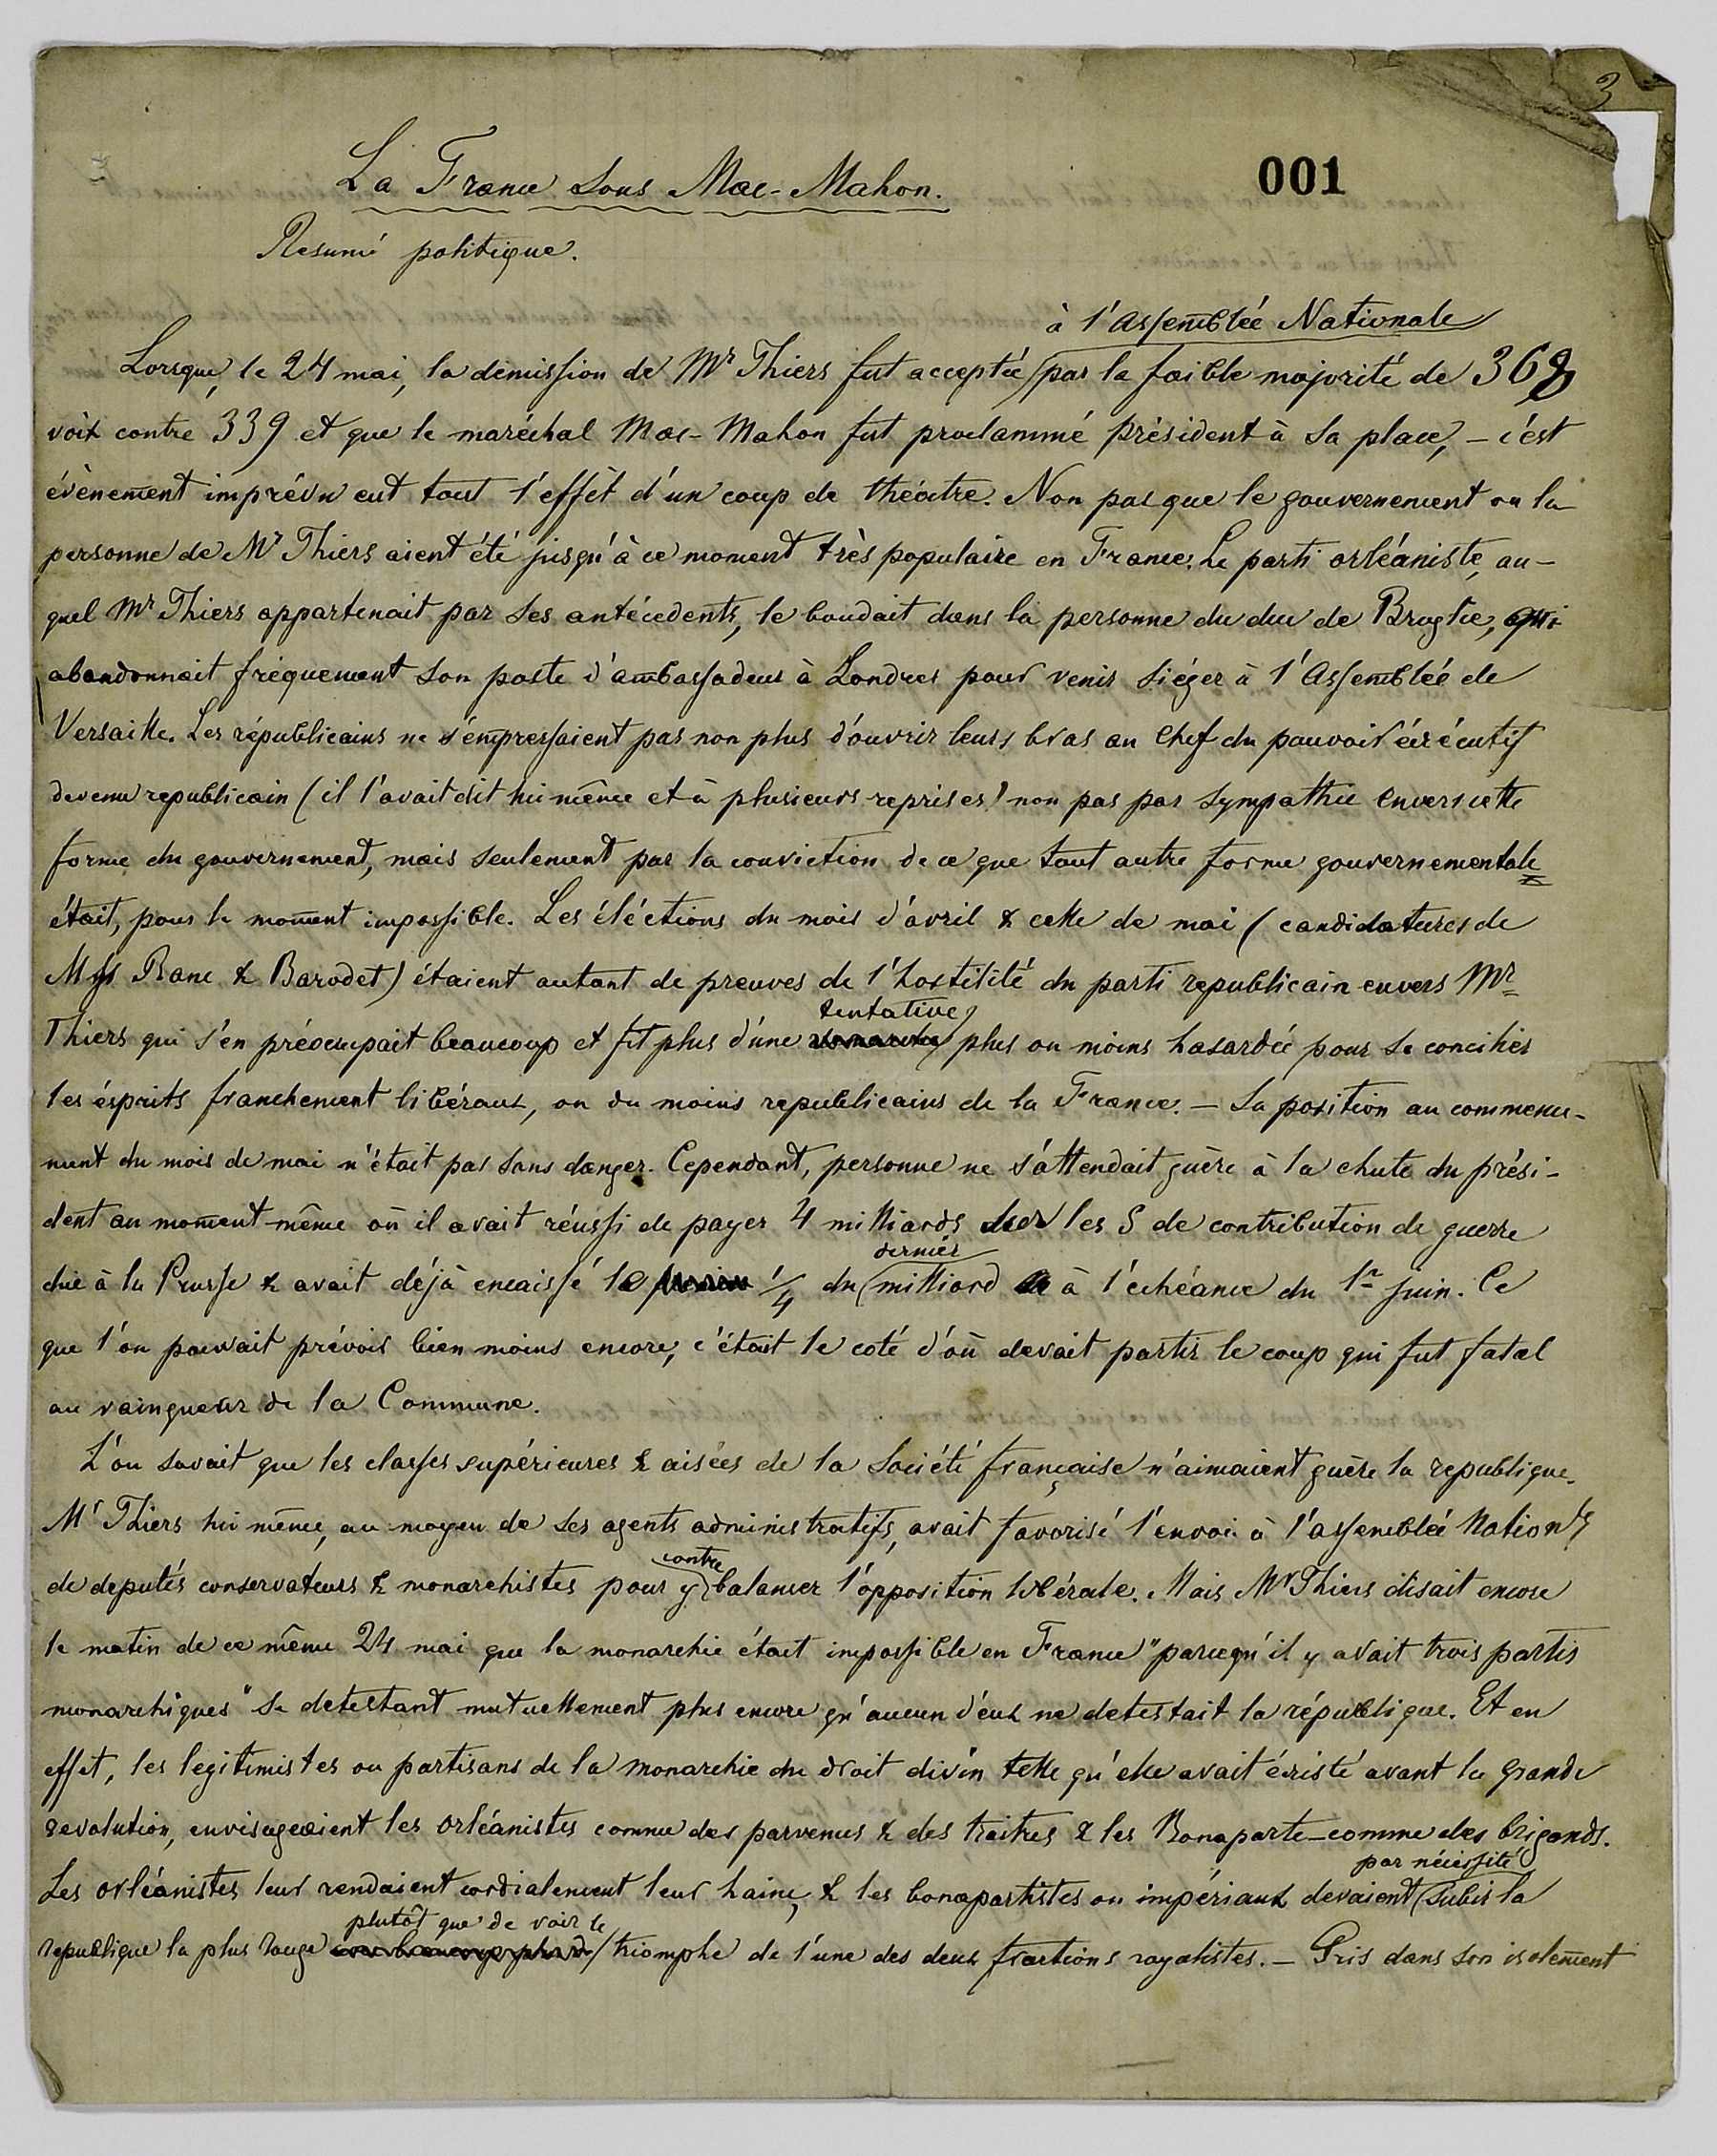 3
001
La France sous Mac-Mahon.
Resumé politique.
à l'Assemblée Nationale
Lorsque, le 24 mai, la démission de Mr Thiers fut acceptée par la faible majorité de 368
voix contre 339 et que le maréchal Mac-Mahon fut proclammé président à sa place, – c'est
évènement imprévu eut tout l'effèt d'un coup de théatre. Non pas que le gouvernement ou la
personne de Mr Thiers aient été jusqu'à ce moment très populaire en France. Le parti orléaniste, au-
quel Mr Thiers appartenait par ses antécedents, le boudait dans la personne du duc de Broglie, qui
abandonnait fréquement son poste d'ambassadeur à Londres pour venir siéger à l'Assemblée de
Versaille. Les républicains ne s'empressaient pas non plus d'ouvrir leurs bras au Chef du pouvoir éxécutif
devenu republicain (il l'avait dit lui même et à plusieurs reprises) non pas par sympathie envers cette
forme du gouvernement, mais seulement par la conviction de ce que tout autre forme gouvernementale
était, pour le moment impossible. Les éléctions du mois d'avril & celle de mai (candidatures de
Mss Ranc & Barodet) étaient autant de preuves de l'hostilité du parti republicain envers Mr
tentative
Thiers qui s'en préoccupait beaucoup et fit plus d'une demarche plus ou moins hasardée pour se concilier
les ésprits franchement libéraux, ou du moins republicains de la France. – Sa position au commence-
ment du mois de mai n'était pas sans danger. Cependant, personne ne s'attendait guère à la chute du prési-
dent au moment même où il avait réussi de payer 4 milliards sur les 5 de contribution de guerre
dernier
due à la Prusse & avait déjà encaissé le 1/4 du milliard à l'echéance du 1r juin. Ce
que l'on pouvait prévoir bien moins encore, c'était le coté d'où devait partir le coup qui fut fatal
au vainqueur de la Commune.
L'on savait que les classes supérieures & aisées de la Société française n'aimaient guère la republique.
Mr Thiers lui même, au moyen de ses agents administratifs, avait favorisé l'envoi à l'assemblée Nationle
contre
de deputés conservateurs & monarchistes pour y balancer l'opposition libérale. Mais Mr Thiers disait encore
le matin de ce même 24 mai que la monarchie était impossible en France "parcequ'il y avait trois partis
monarchiques" se detestant mutuellement plus encore qu'aucun d'eux ne detestait la république. Et en
effet, les legitimistes ou partisans de la monarchie du droit divin telle qu'elle avait éxisté avant la grande
revolution, envisageaient les orléanistes comme des parvenus & des traitres & les Bonaparte – comme des brigands.
par nécissité
Les orléanistes leur rendaient cordialement leur haine, & les bonapartistes ou impériaux devaient subir la
plutôt que de voir le
republique la plus rouge triomphe de l'une des deux fractions royalistes. – Pris dans son isolement